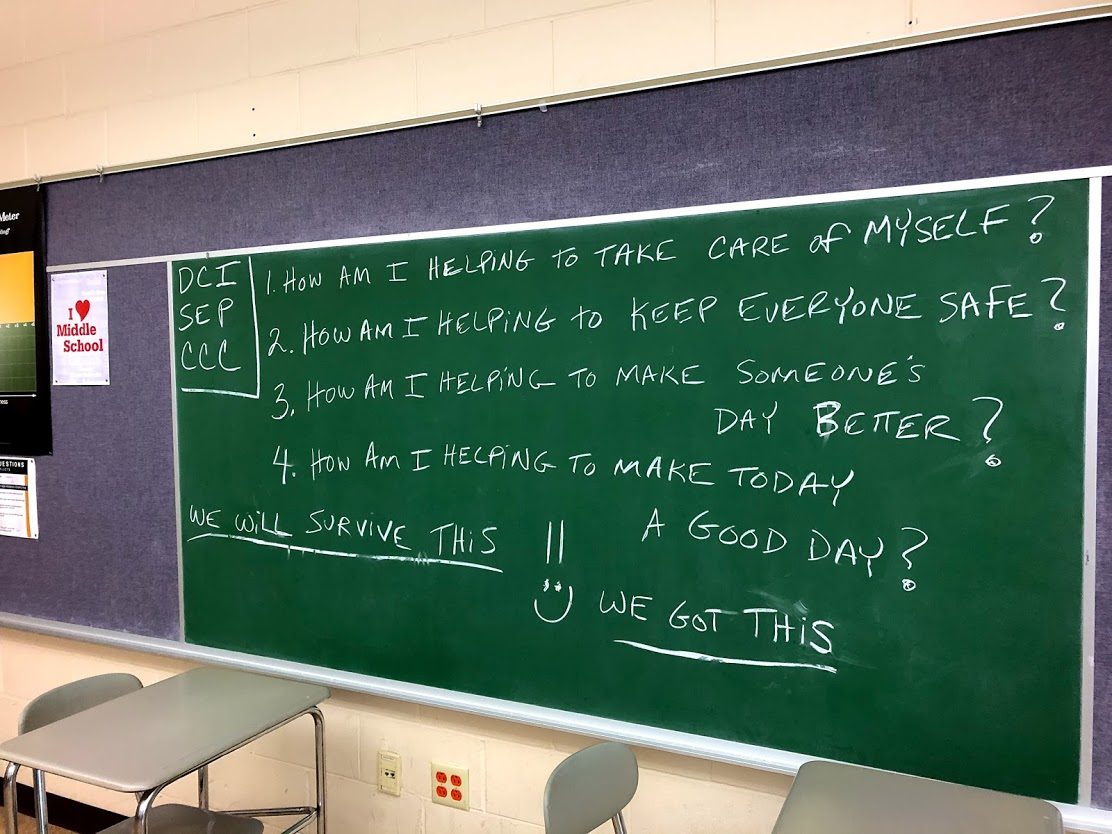 Meter
DCI
SEP
CCC
1. HOW AM I HELPING TO TAKE CARE OF MYSELF?
2. HOW AM I HELPING TO KEEP EVERYONE SAFE?
3. HOW AM I HELPING TO MAKE SOMEONE'S
DAY BETTER?
4. HOW AM I HELPING TO MAKE TODAY
A GOOD DAY?
WE WILL SURVIVE THIS
WE GOT THIS
I ❤
Middle
School